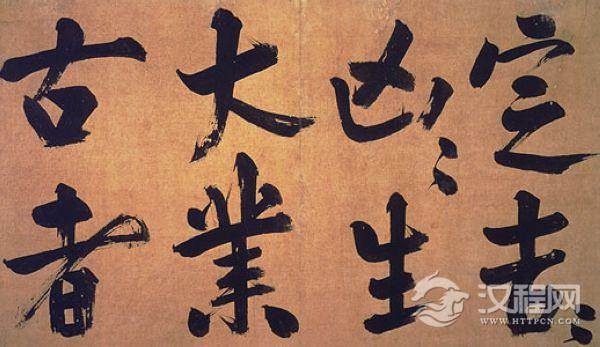 定吉〻
凶〻生
大業
古者
汉程网
WWW.HTTPCN.COM